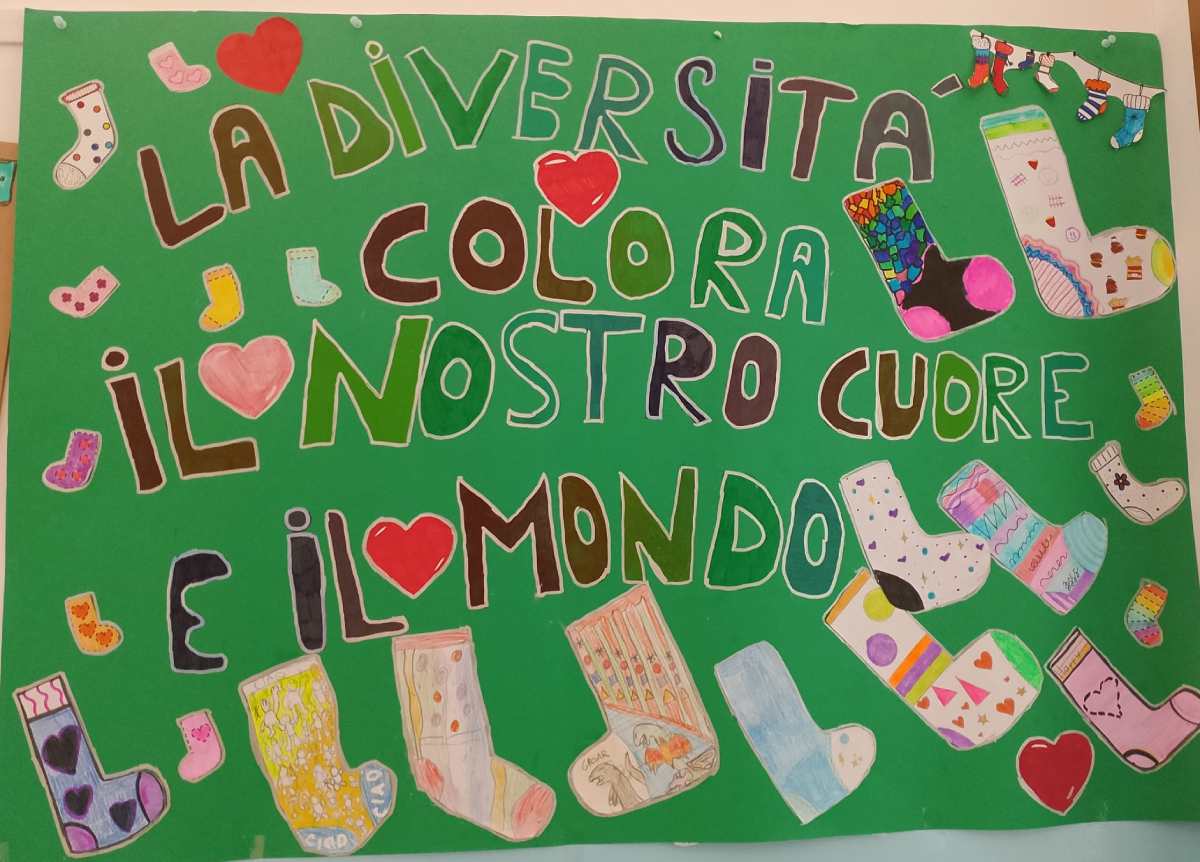 LA DIVERSITA'
COLORA
iL NOSTRO CUORE
E iL MONDO
CIAO
CIAO